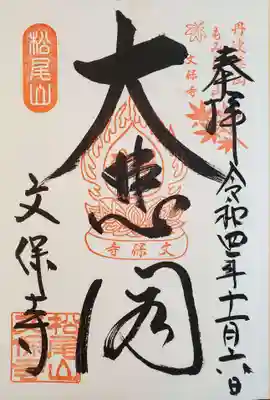 奉拝
令和四年十一月六日
丹波
もみじ
文保寺
大悲閣
文保寺
松尾山
文保寺
松尾山
文保寺